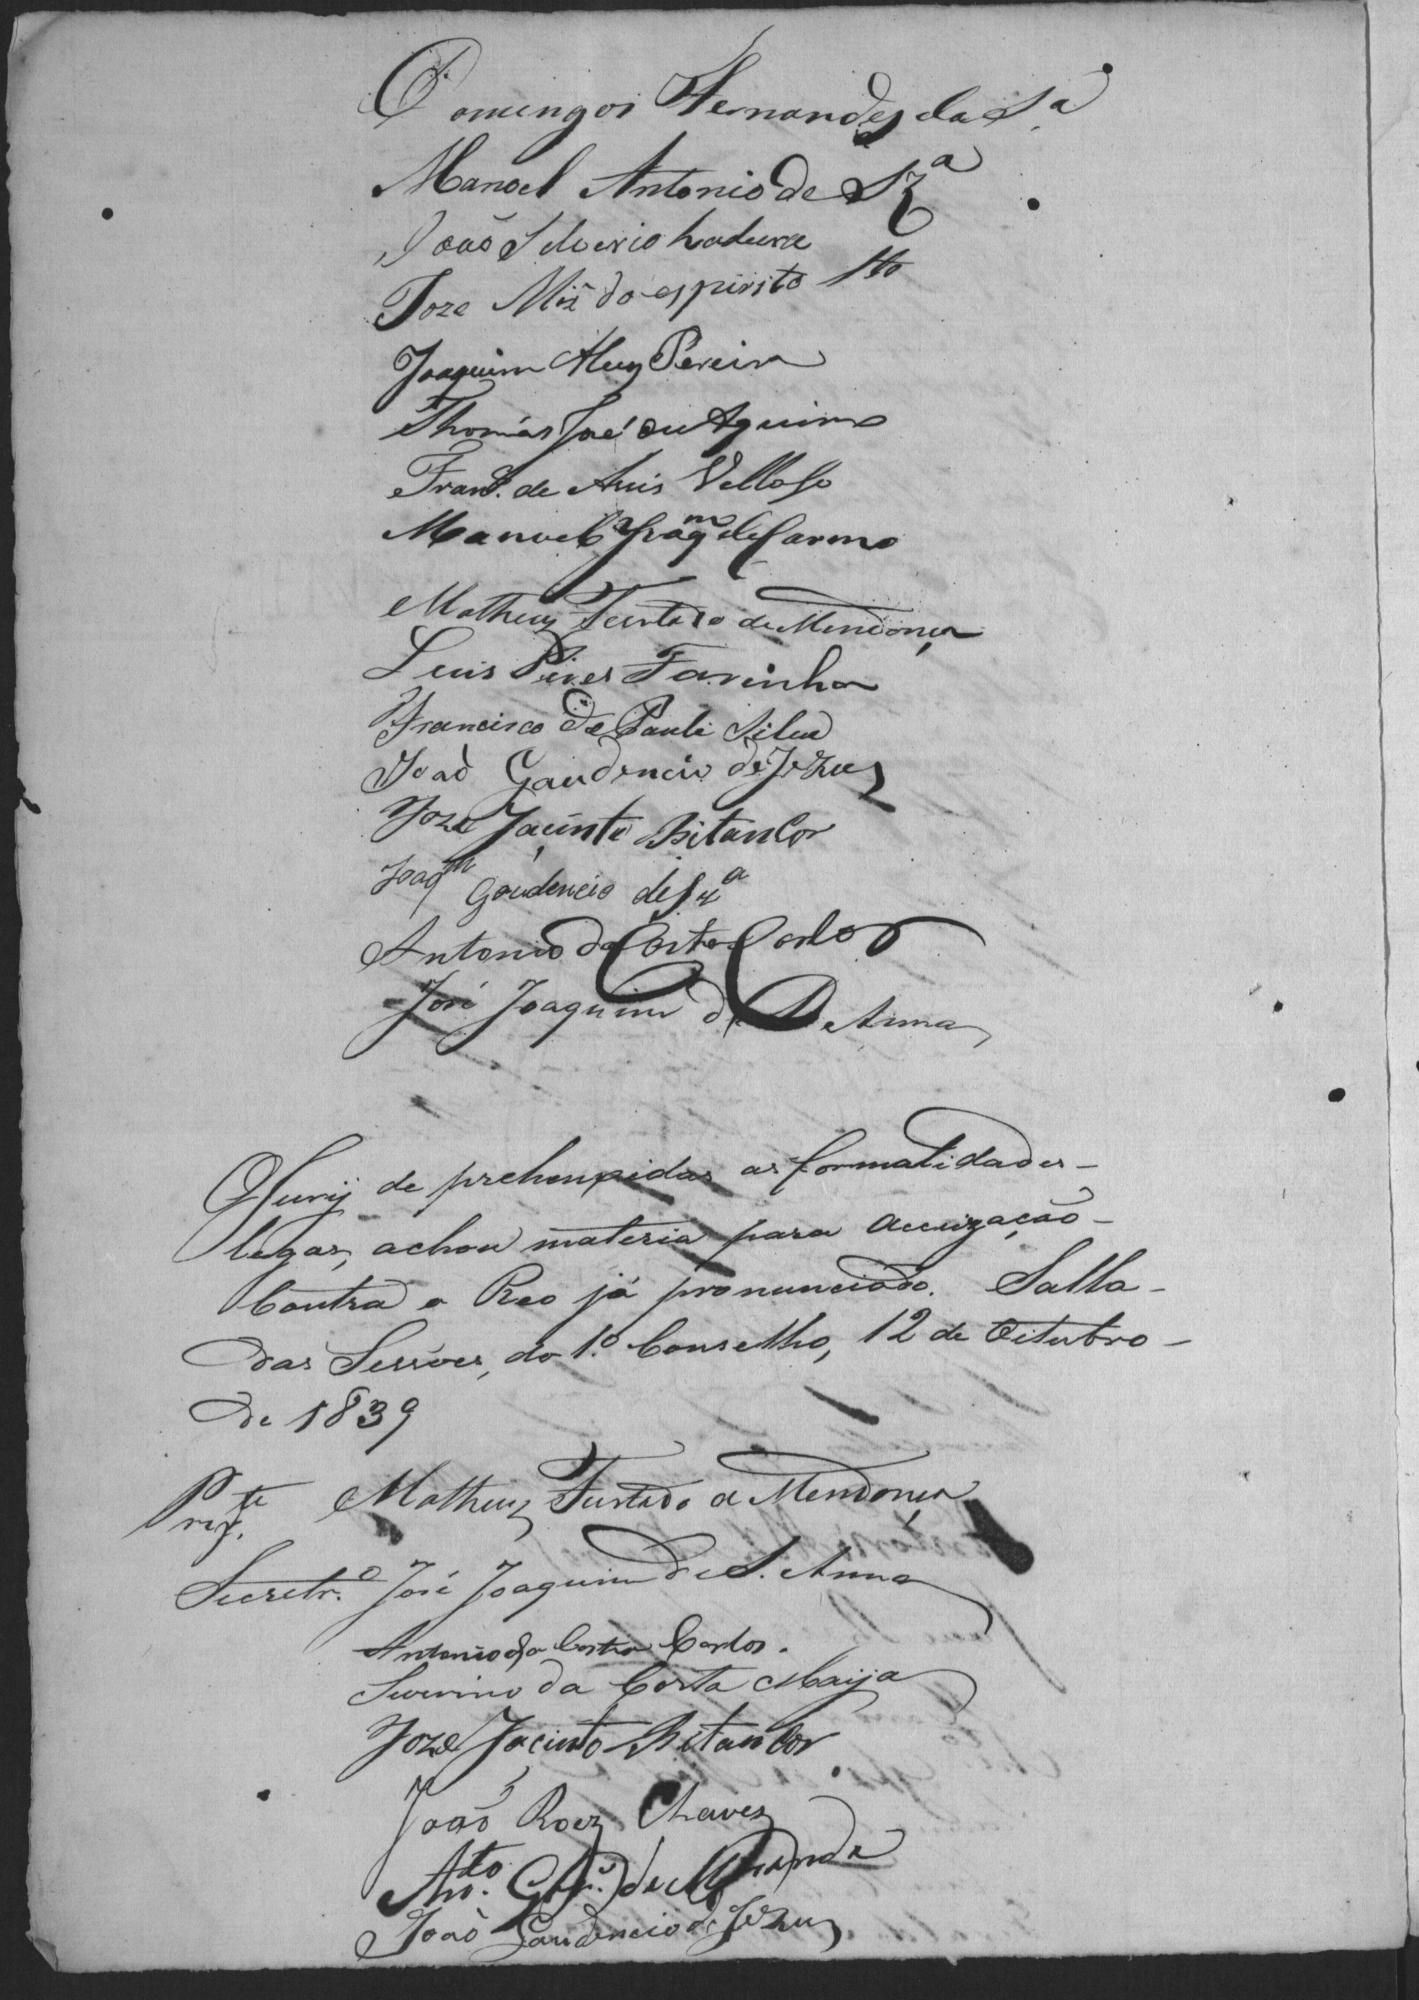 Domingos Fernandes da S.ª
Manoel Antonio de Sz.ª
João Silverio
Joze Miz do espirito Sto
Joaquim Alvz Pereira
Thomás José de Aquino
Fran.co de Assis Vellosо
Manuel Joaq.m do Carmo
Matheuz Furtado de Mendonça
Luis Pires Farinha
Francisco de Paula Silva
João Gaudencio de Jezus
Joze Jacinto Bitancor
Joaq.m Gaudencio de Sz.ª
Antonio da Costa Carlos
José Joaquim de S. Anna
O Jury de prehenxidas as formalidades-
legaes, achou materia para accuzação-
Contra o Reo já pronunciado. Salla-
das Sessões, do 1.º Conselho, 12 de Oitubro-
de 1839
Prez.te Matheuz Furtado de Mendonça
Secretr.º José Joaquim de S. Anna
Antonio da Costa Carlos.
Severino da Costa Maija
Joze Jacinto Bitancor
João Roiz Chaves
An.to de Miranda
João Gaudencio de Jezus